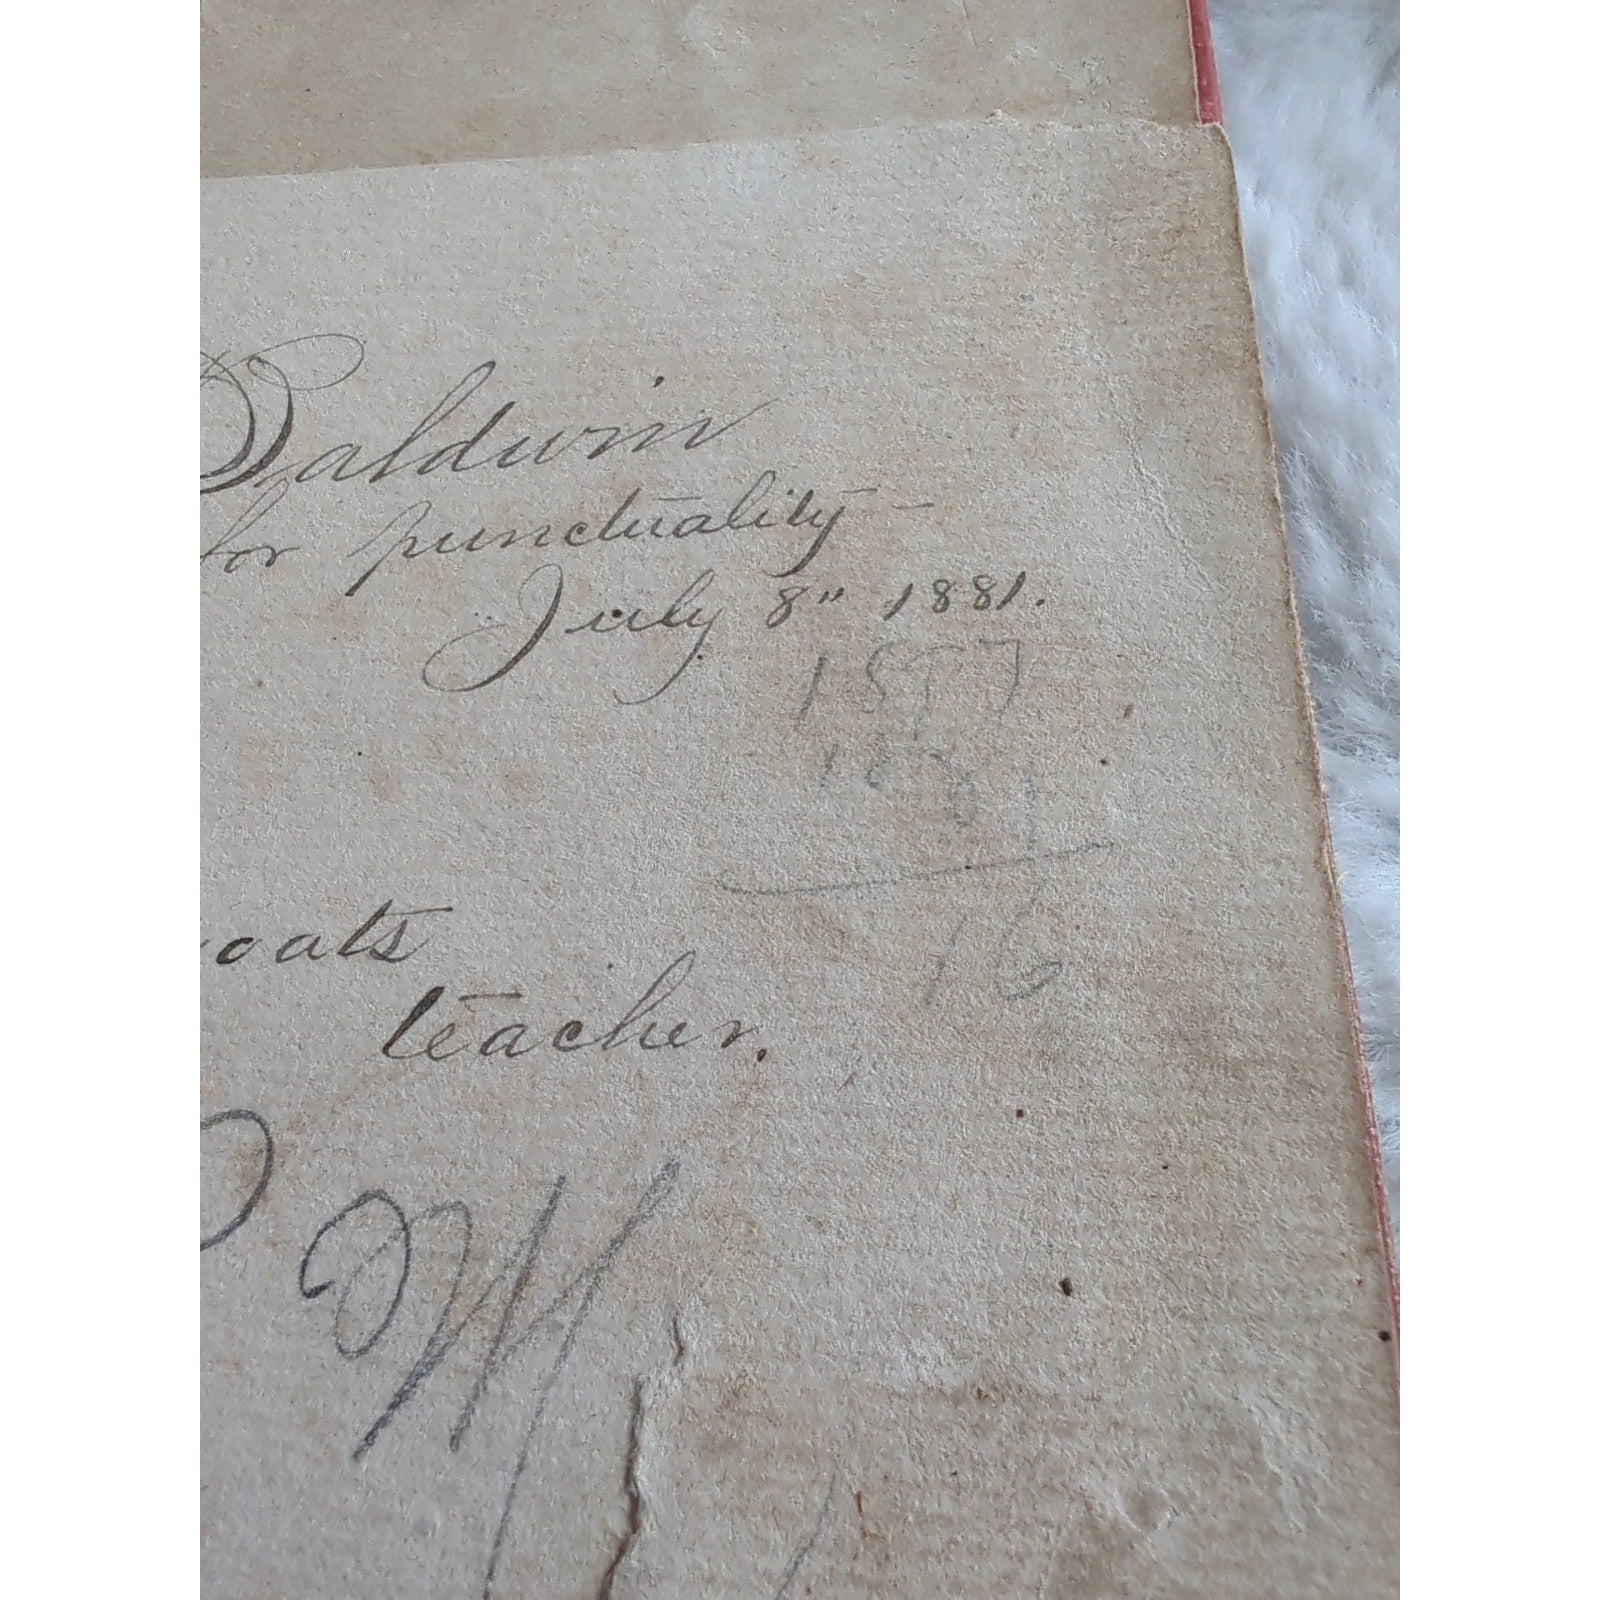 Baldwin
for punctuality –
July 8" 1881.
1897
1881
16
oats
teacher.